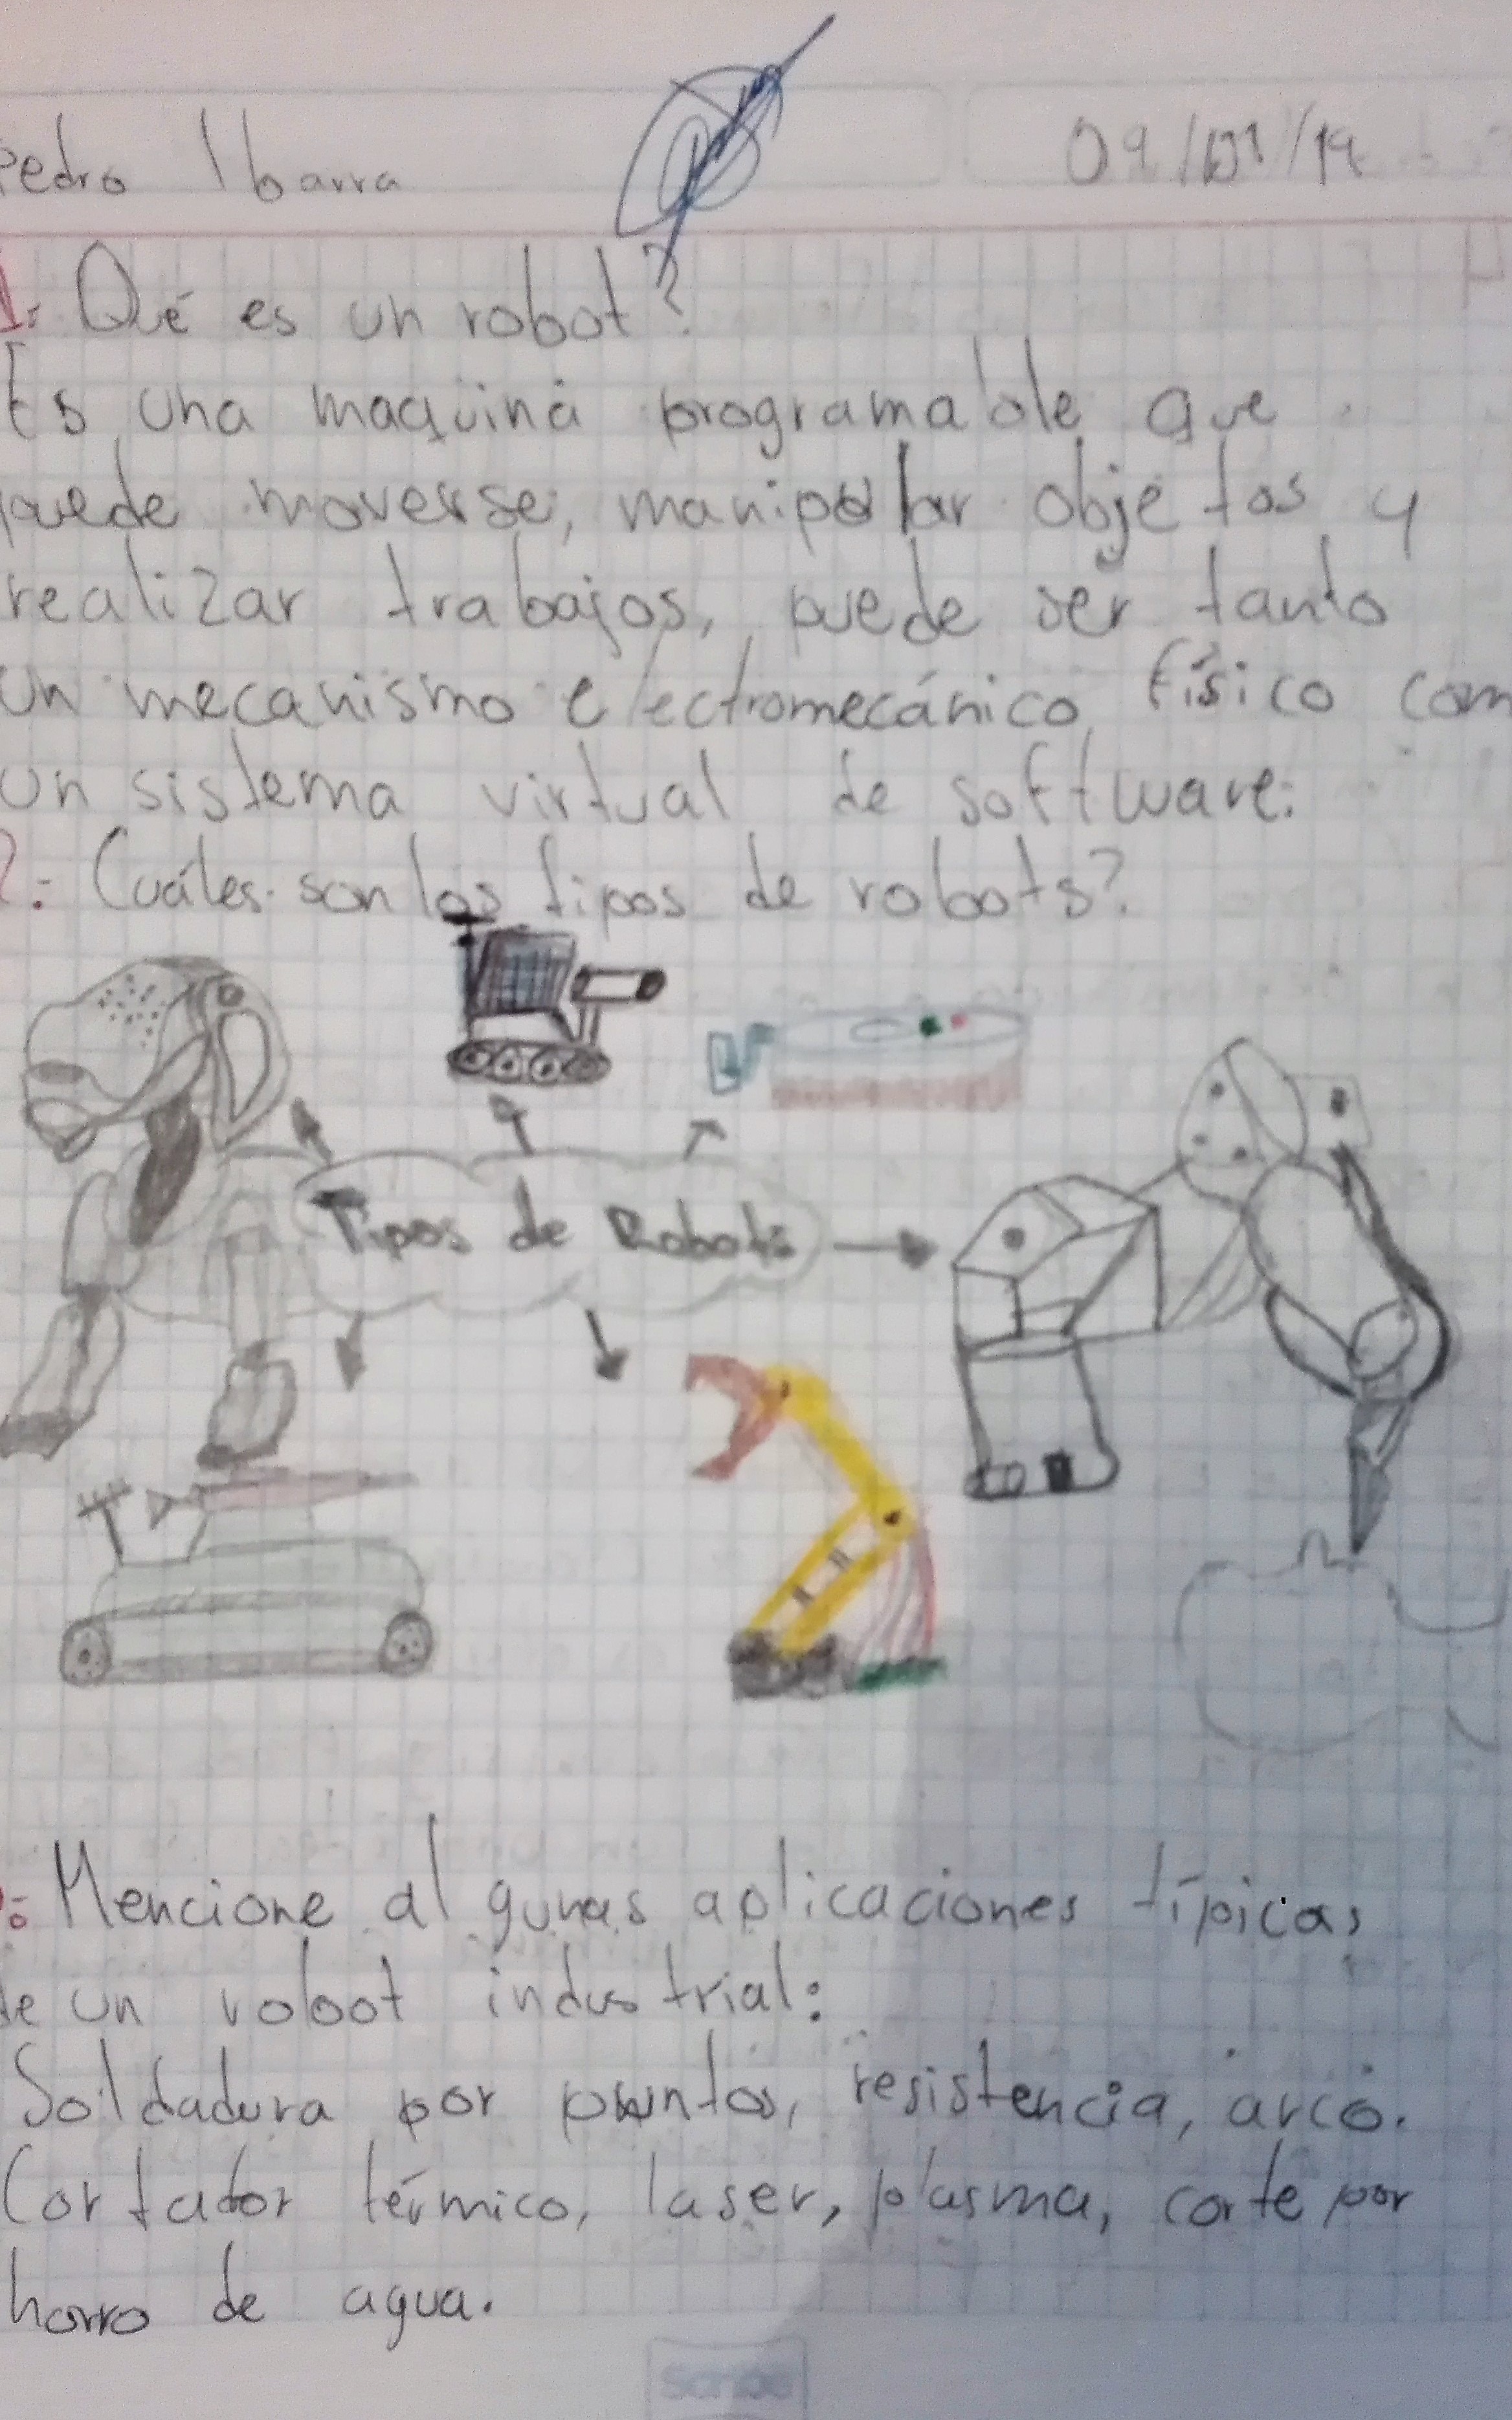 Pedro Ibarra
1: Qué es un robot?
Es una maquina programable que
puede moverse, manipular objetos y
realizar trabajos, puede ser tanto
un mecanismo electromecánico físico com
un sistema virtual de software.
2: Cuáles son los tipos de robots?
Tipos de Robots
: Mencione algunas aplicaciones típicas
de un robot industrial:
Soldadura por puntos, resistencia, arco.
Cortador térmico, laser, plasma, corte por
horro de agua.
Scribe